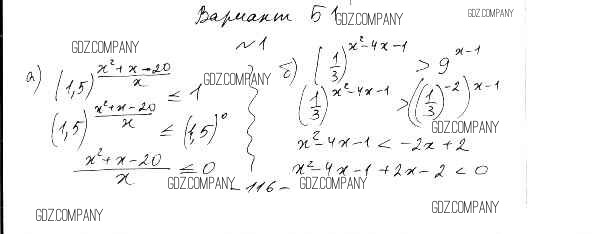 Вариант Б1
GDZ.COMPANY
GDZ.COMPANY
№1
GDZ.COMPANY
а) (1,5)^((x²+x-20)/x) ≤ 1
GDZ.COMPANY
(1,5)^((x²+x-20)/x) ≤ (1,5)⁰
(x²+x-20)/x ≤ 0
GDZ.COMPANY
б) (1/3)^(x²-4x-1) > 9^(x-1)
(1/3)^(x²-4x-1) > ((1/3)^(-2))^(x-1)
GDZ.COMPANY
x²-4x-1 < -2x+2
x²-4x-1+2x-2 < 0
GDZ.COMPANY
-116-
GDZ.COMPANY
GDZ.COMPANY